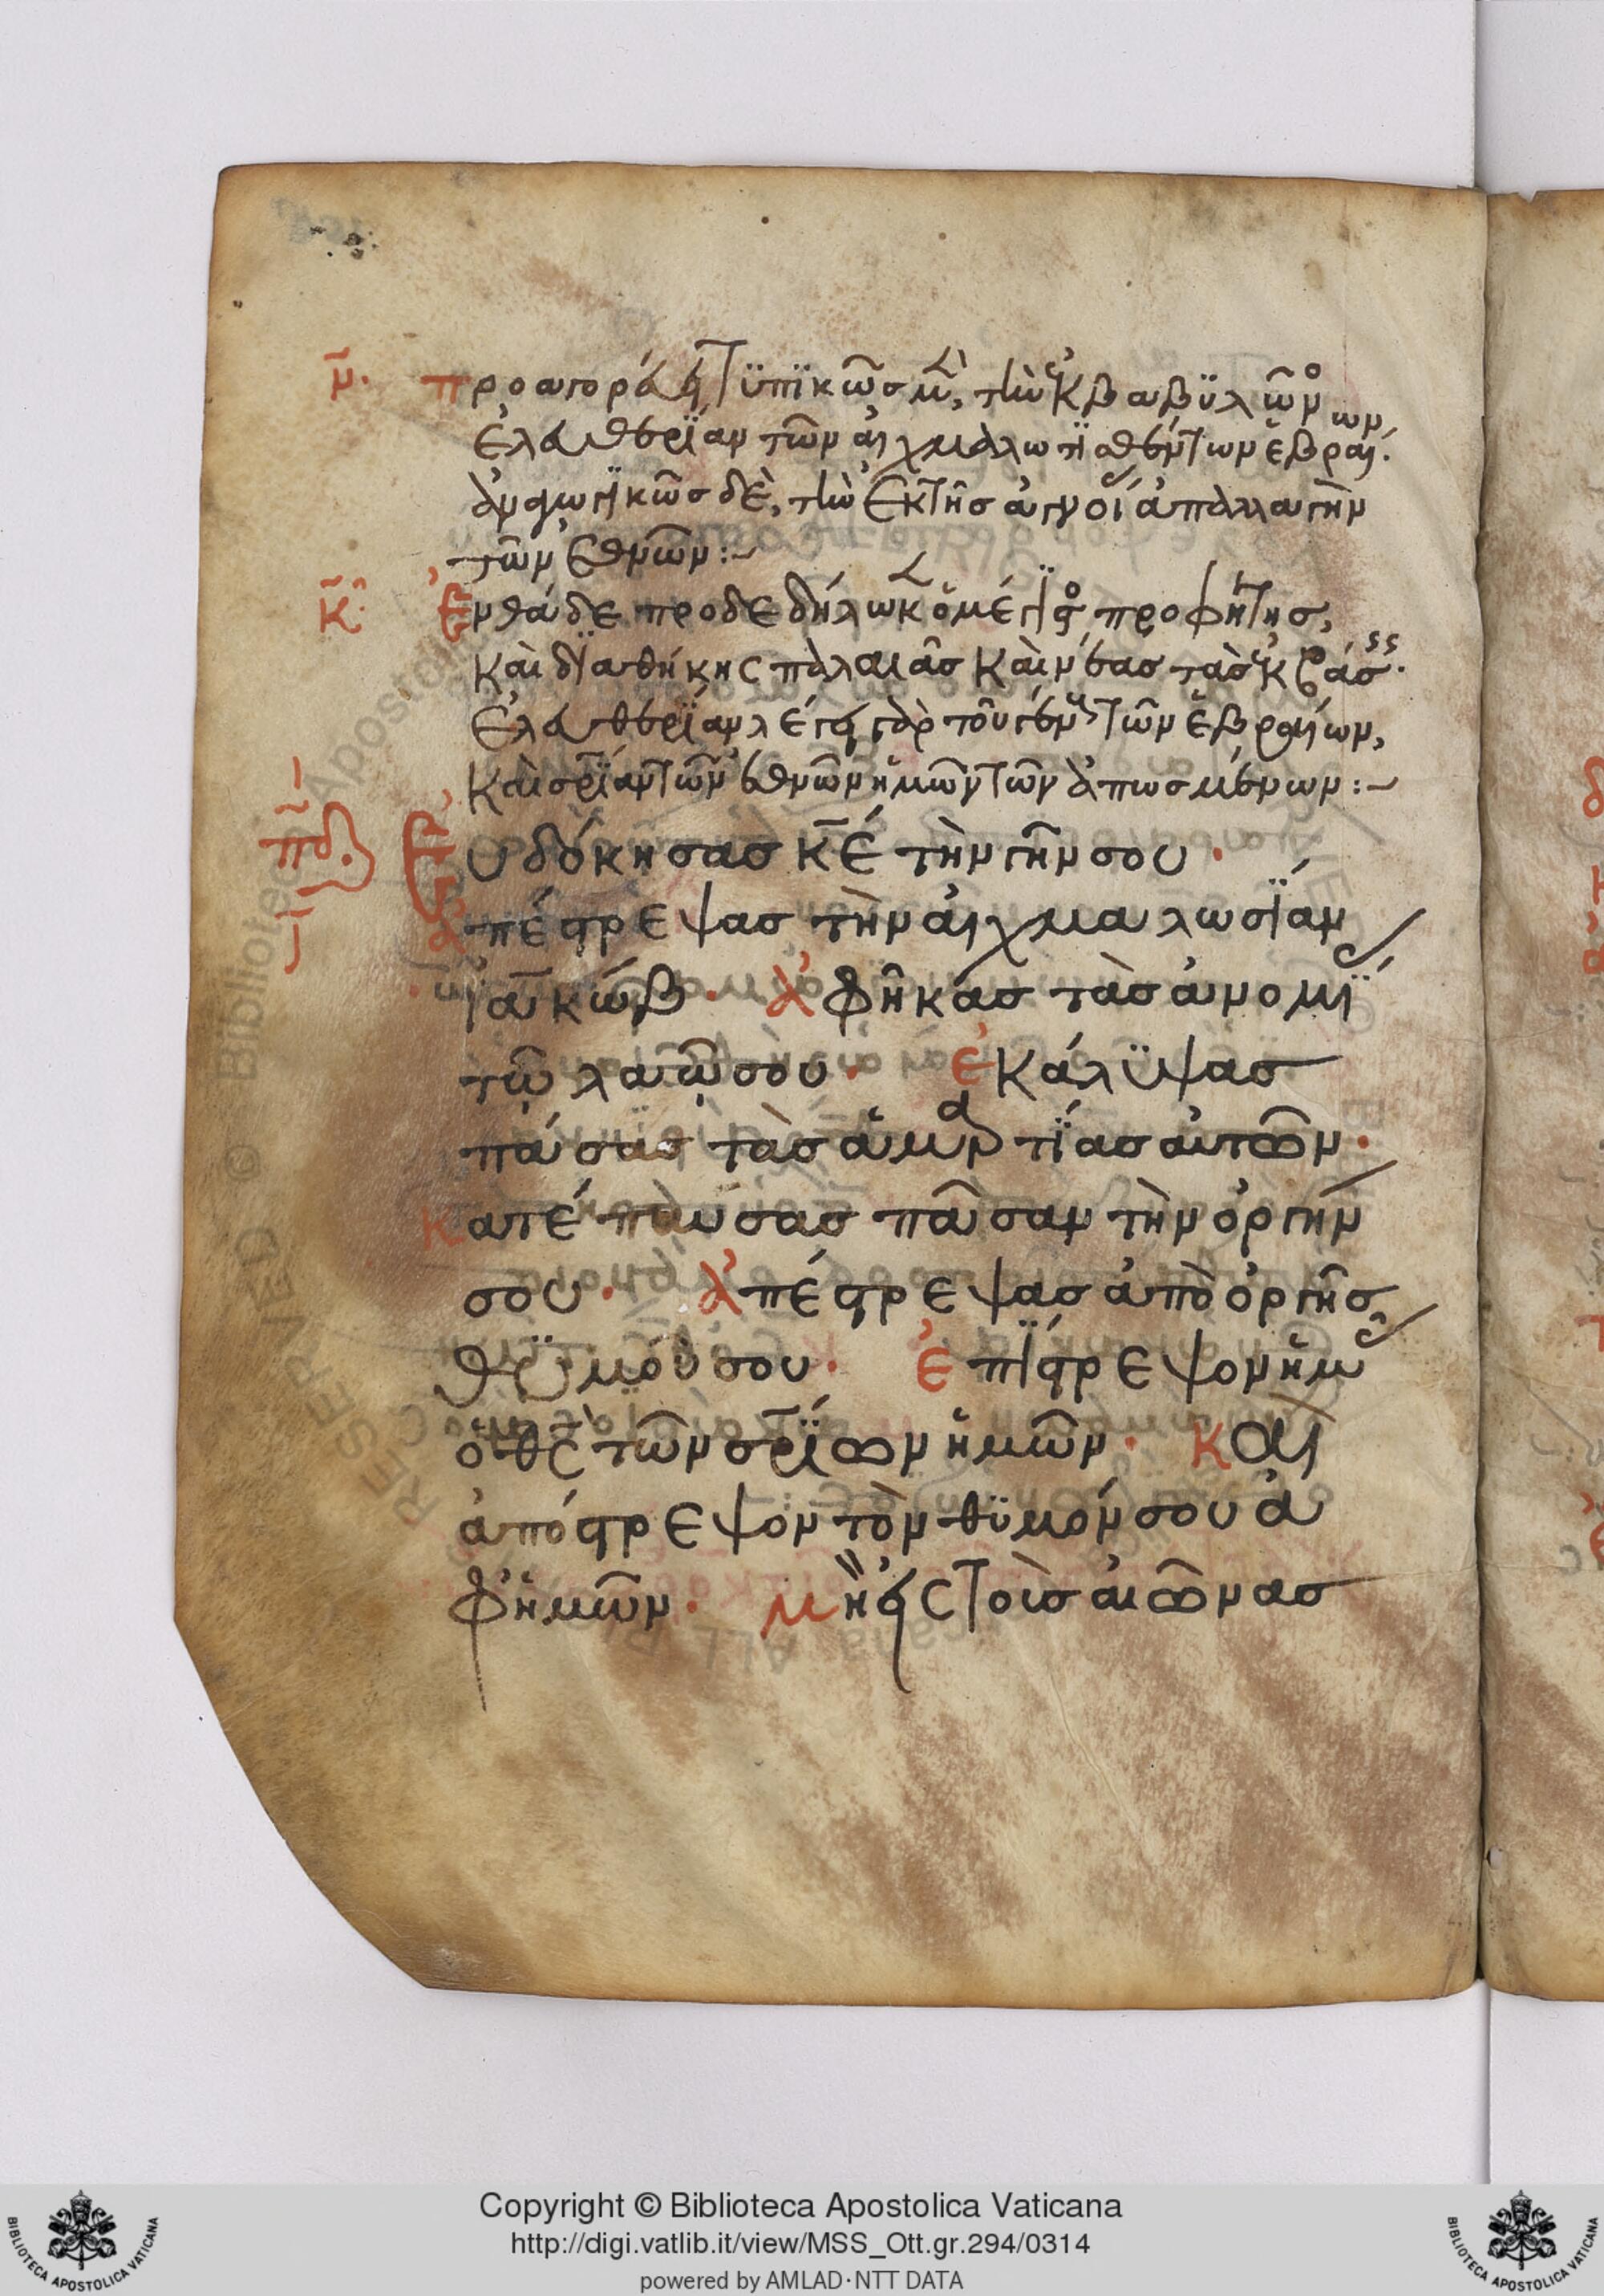 μ̃. προαγορεύει τυπικῶς μὲν, τὴν ἐκ βαβυλῶνος
ἐλευθερίαν τῶν αἰχμαλωτισθέντων ἑβραίων.
ἀναγωγικῶς δὲ, τὴν ἐκ τῆς ἀγνοίας ἀπαλλαγὴν
τῶν ἐθνῶν :~
κ̃. Ἐνθάδε προδεδήλωκεν ὁ μέγιστος προφήτης,
καὶ διαθήκης παλαιᾶς καὶ νέας τὰς
ἐλευθερίαν λέγει γὰρ τοῦ γένους τῶν ἑβραίων,
καὶ σρίαν τῶν ἐθνῶν ἡμῶν τῶν :~
πδ. Εὐδόκησας κ̅ε̅ τὴν γῆν σου ·
ἀπέστρεψας τὴν αἰχμαλωσίαν
ἰακώβ · ἀφῆκας τὰς ἀνομί
τῷ λαῷ σου · ἐκάλυψας
πάσας τὰς ἁμαρτίας αὐτῶν ·
κατέπαυσας πᾶσαν τὴν ὀργήν
σου · ἀπέστρεψας ἀπὸ ὀργῆς
θυμοῦ σου · ἐπίστρεψον ἡμᾶς
ὁ θ̅ς̅ τῶν σρίων ἡμῶν · καὶ
ἀπόστρεψον τὸν θυμόν σου ἀ
φ' ἡμῶν · μὴ εἰς τοὺς αἰῶνας
Copyright © Biblioteca Apostolica Vaticana
http://digi.vatlib.it/view/MSS_Ott.gr.294/0314
powered by AMLAD·NTT DATA
BIBLIOTECA APOSTOLICA VATICANA
BIBLIOTECA APOSTOLICA VATICANA